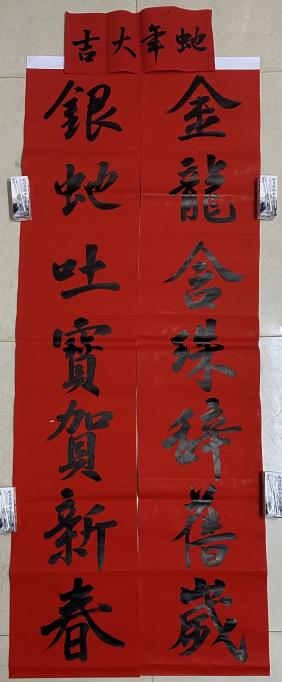 蛇年大吉
金龍含珠辞舊歲
銀蛇吐寶賀新春